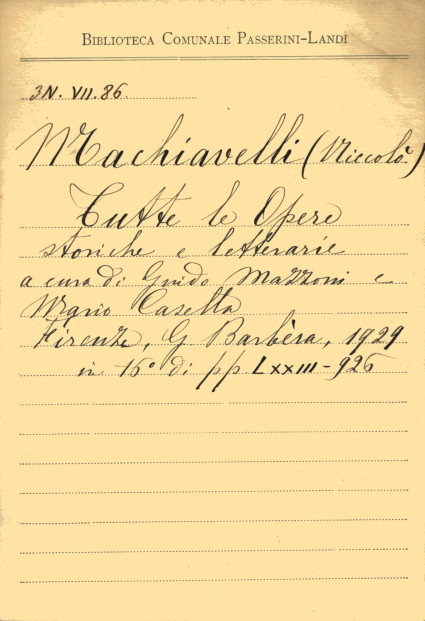 BIBLIOTECA COMUNALE PASSERINI-LANDI
3N. VII. 86.
Machiavelli (Niccolò)
Tutte le Opere
storiche e letterarie
a cura di Guido Mazzoni e
Mario Casella
Firenze, G. Barbèra, 1929
in 16° di pp. LXXIII-926